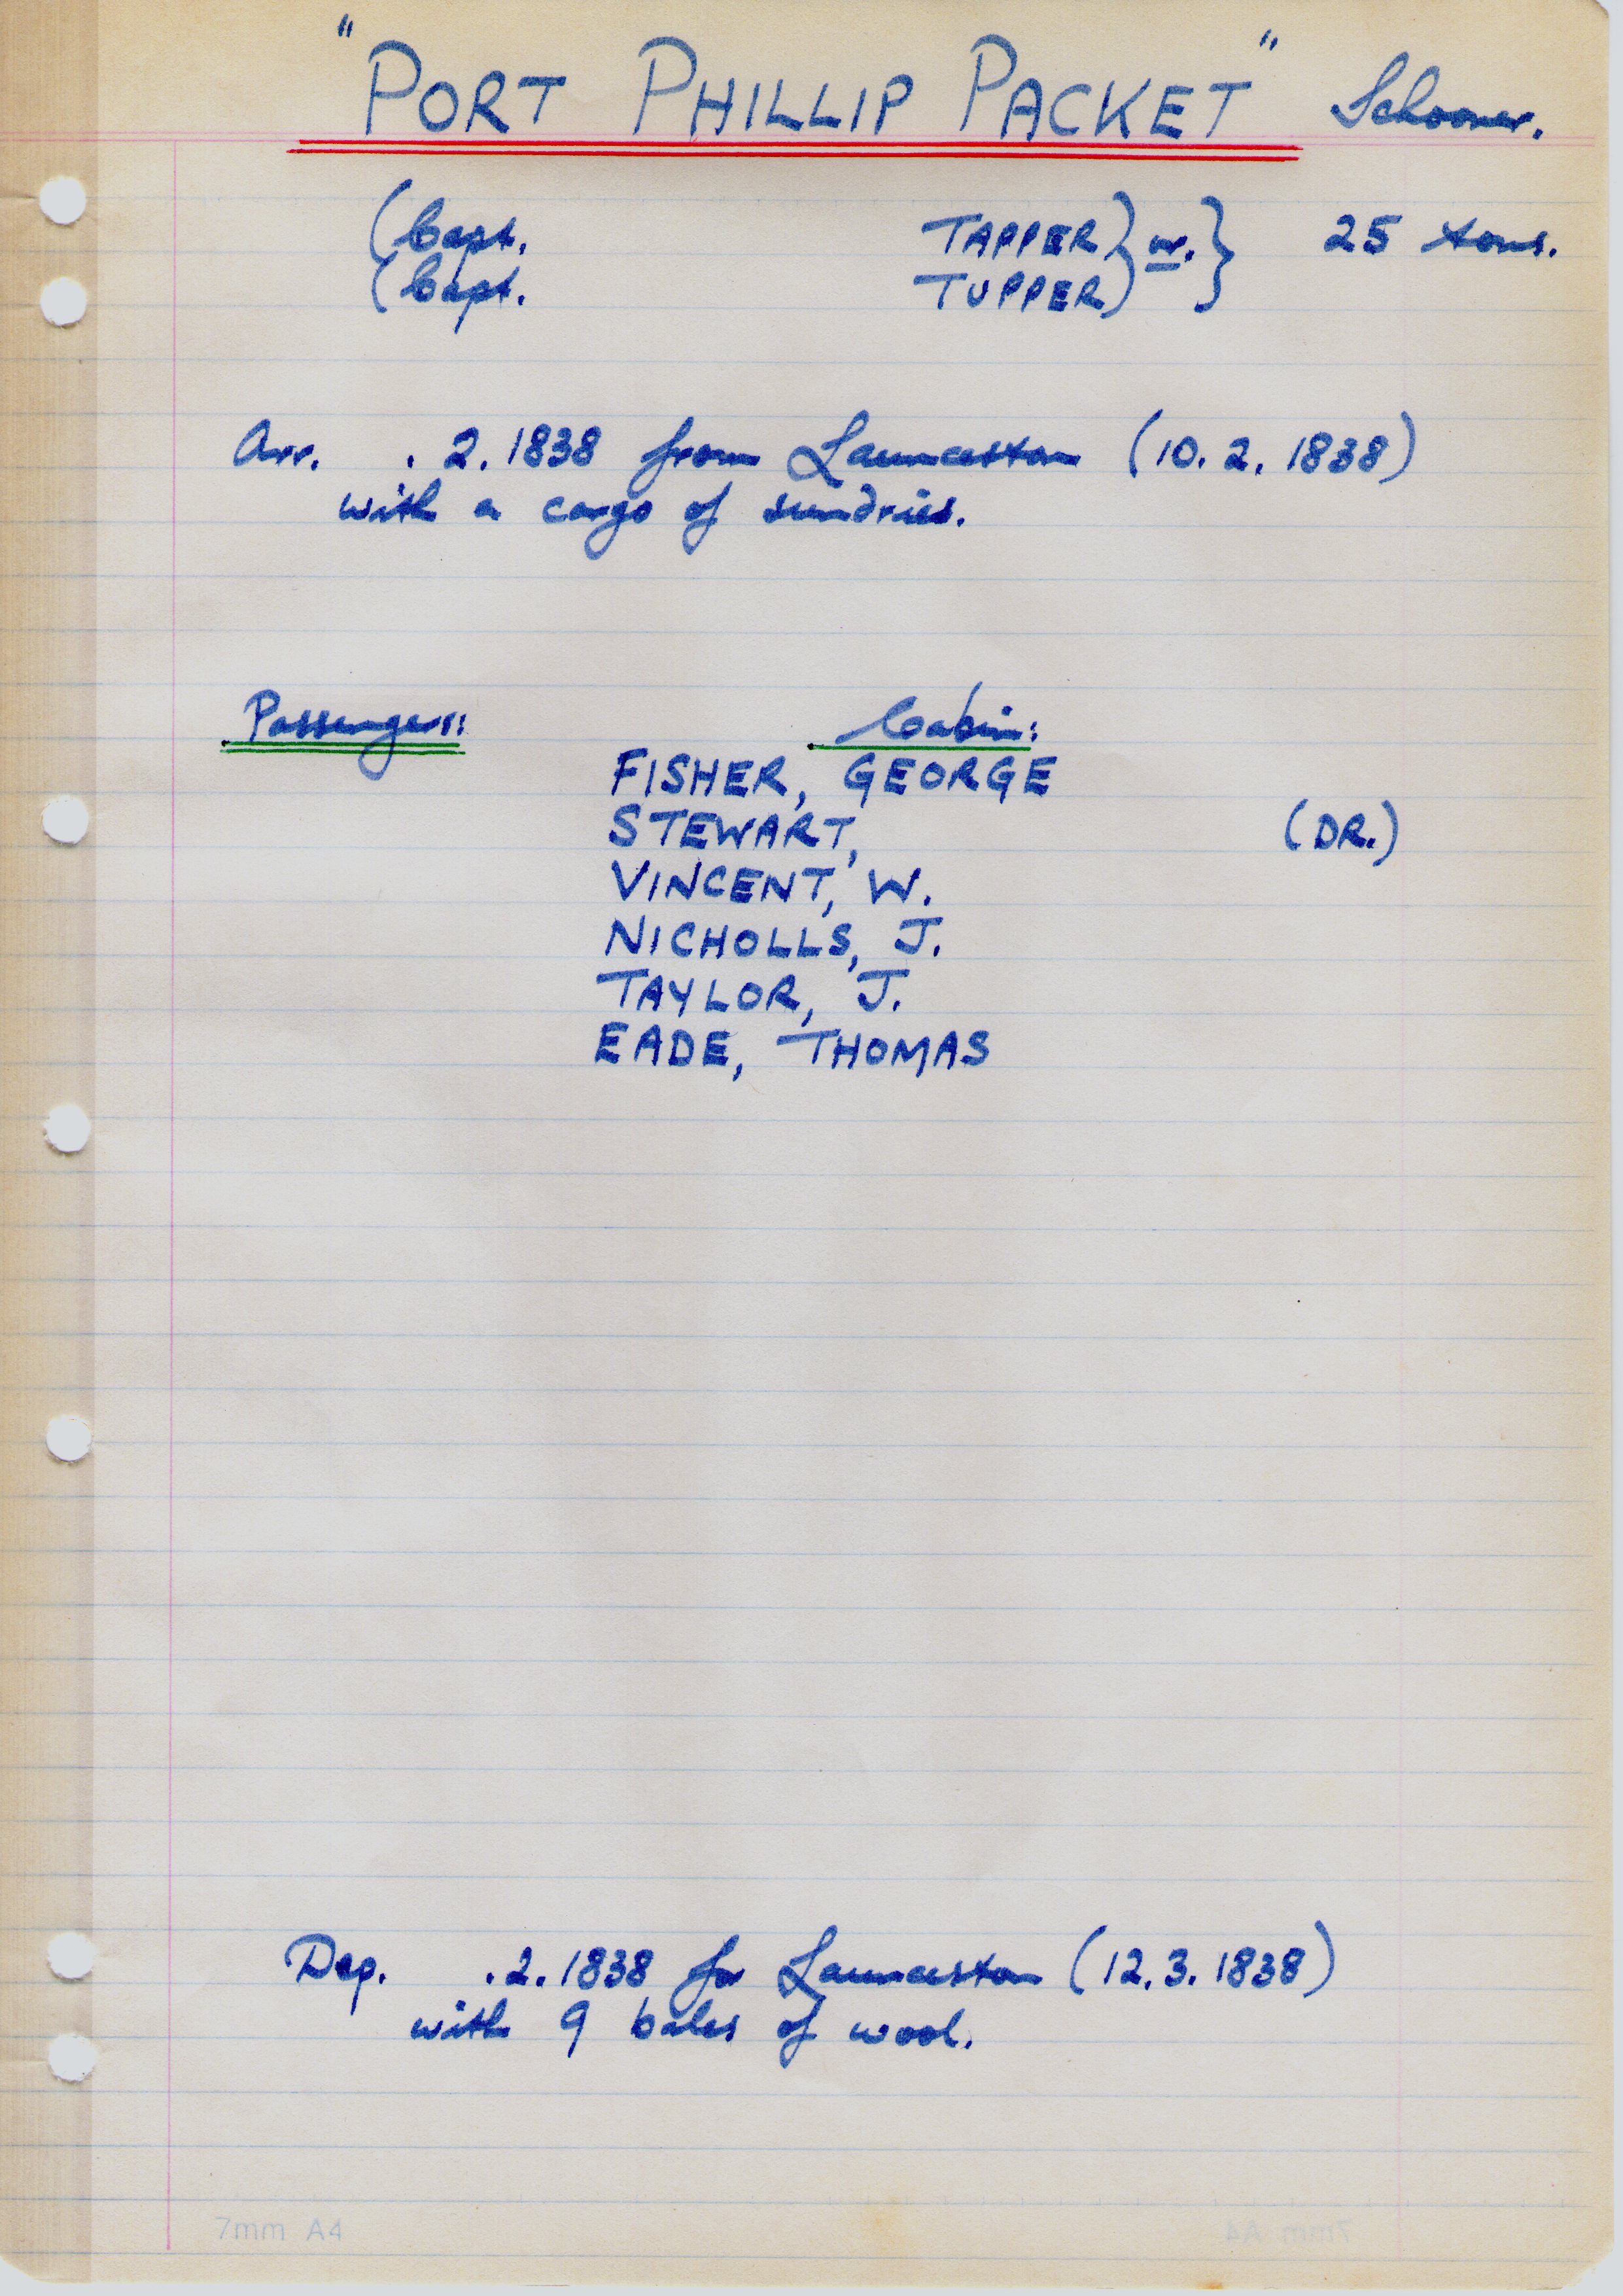 "PORT PHILLIP PACKET" Schooner.
(Capt. TAPPER) or. } 25 tons.
(Capt. TUPPER)
Arr. . 2. 1838 from Launceston (10. 2. 1838)
with a cargo of sundries.
Passengers: Cabin:
FISHER, GEORGE
STEWART, (DR.)
VINCENT, W.
NICHOLLS, J.
TAYLOR, J.
EADE, THOMAS
Dep. . 2. 1838 for Launceston (12. 3. 1838)
with 9 bales of wool.
7mm A4